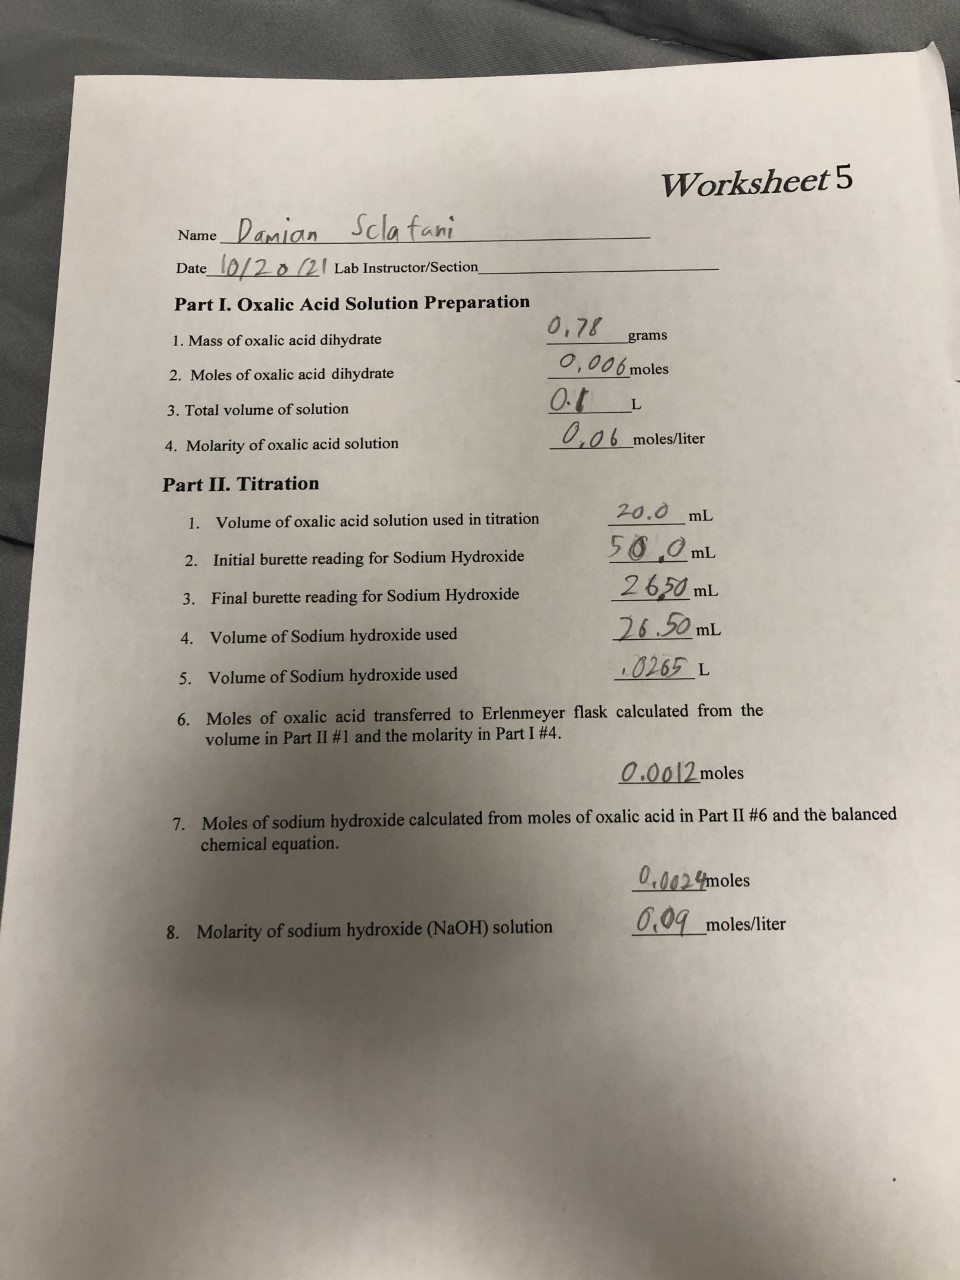 Worksheet 5
Name Damian Sclafani
Date 10/20/21 Lab Instructor/Section
Part I. Oxalic Acid Solution Preparation
1. Mass of oxalic acid dihydrate 0.78 grams
2. Moles of oxalic acid dihydrate 0.006 moles
3. Total volume of solution 0.1 L
4. Molarity of oxalic acid solution 0.06 moles/liter
Part II. Titration
1. Volume of oxalic acid solution used in titration 20.0 mL
2. Initial burette reading for Sodium Hydroxide 50.0 mL
3. Final burette reading for Sodium Hydroxide 26.50 mL
4. Volume of Sodium hydroxide used 26.50 mL
5. Volume of Sodium hydroxide used .0265 L
6. Moles of oxalic acid transferred to Erlenmeyer flask calculated from the
volume in Part II #1 and the molarity in Part I #4.
0.0012 moles
7. Moles of sodium hydroxide calculated from moles of oxalic acid in Part II #6 and the balanced
chemical equation.
0.0024 moles
8. Molarity of sodium hydroxide (NaOH) solution 0.09 moles/liter